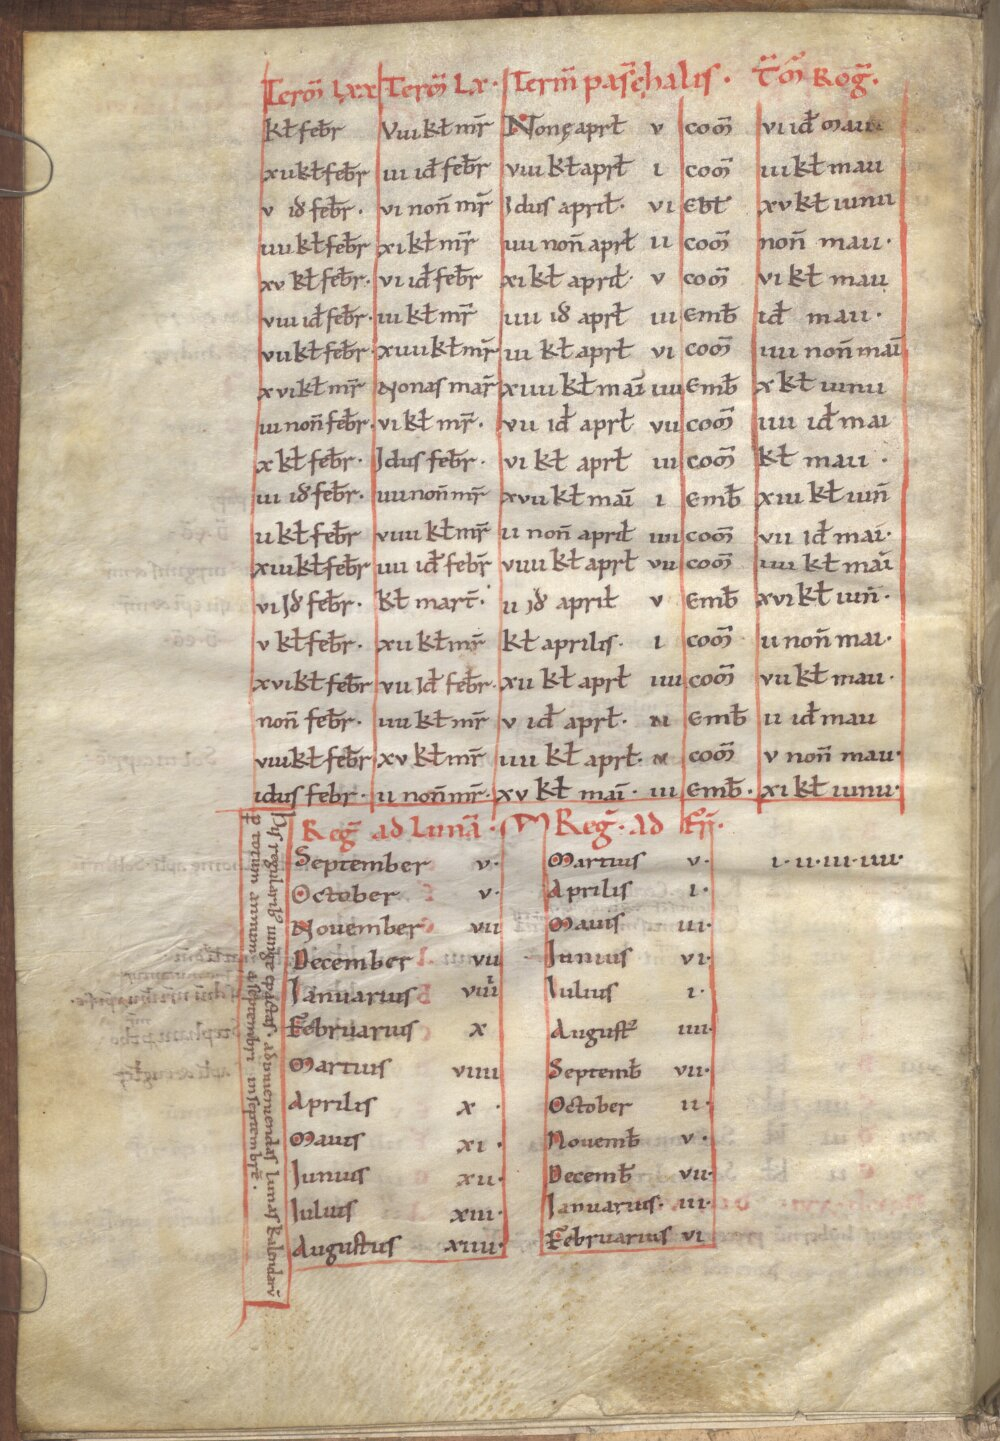 Term̄ Lxx Term̄ Lx · Term̄ pasc̄halis · T̄m̄ Roḡ ·
kł febr̄ Viii kł mr̄ Nonę aprł v com̄ vi id̄ maii
xii kł febr̄ iii id̄ febr̄ viii kł aprł i com̄ iii kł maii
v id̄ febr̄ · vi non̄ mr̄ Idus april · vi Ebł xv kł iunii
iiii kł febr̄ xi kł mr̄ iiii non̄ aprł ii com̄ non̄ maii ·
xv kł febr̄ · vi id̄ febr̄ xi kł april · v com̄ vi kł maii
viii id̄ febr̄ · iii kł mr̄ iiii id̄ aprł iii Emb̄ id̄ maii ·
vii kł febr̄ · xiiii kł mr̄ iii kł aprł vi com̄ iiii non̄ mai
xvi kł mr̄ Nonas mar̄ xiiii kł mai iiii Emb̄ x kł iunii
iii non̄ febr̄ · vi kł mr̄ · vii id̄ aprł vii com̄ iiii id̄ mai
x kł febr̄ · Idus febr̄ · vi kł aprł iii com̄ kł maii ·
iii id̄ febr̄ · iiii non̄ mr̄ xvii kł mai i Emb̄ xiii kł iun̄
ii kł febr̄ viiii kł mr̄ ii non̄ april iiii com̄ vii id̄ mai ·
xiii kł febr̄ iiii id̄ febr̄ viiii kł aprł vii com̄ iiii kł mai
vi Id̄ febr̄ · kł mart̄ · ii Id̄ april v Emb̄ xvi kł iun̄ ·
v kł febr̄ · xii kł mr̄ kł aprilis · i com̄ ii non̄ mai ·
xvi kł febr̄ vii Id̄ febr̄ · xii kł aprł iiii com̄ vii kł maii ·
non̄ febr̄ · iiii kł mr̄ v id̄ aprł · N Emb̄ ii id̄ maii
viii kł febr̄ xv kł mr̄ iiii kł aprł · N com̄ v non̄ maii ·
idus febr · ii non̄ mr̄ · xv kł mai · iii Emb̄ · xi kł iunii ·
Reg̅ ad Lunā · Reg̅ · ad Fr̄ ·
September v · Martius v · i · ii · iii · iiii ·
October v · Aprilis i ·
November vii Maius iii ·
December vii Iunius vi ·
Ianuarius viiii Iulius i ·
Februarius x August̄ iiii ·
Martius viiii Septemb̄ vii ·
Aprilis x · October ii ·
Maius xi · Novemb̄ v ·
Iunius xii · Decemb̄ vii ·
Iulius xiii · Ianuarius · iii ·
Augustus xiiii · Februarius vi
His regularib; iunge epactas ad inveniendas lunas kalendarū
p̱ totum annum a septembri in septembrē ·